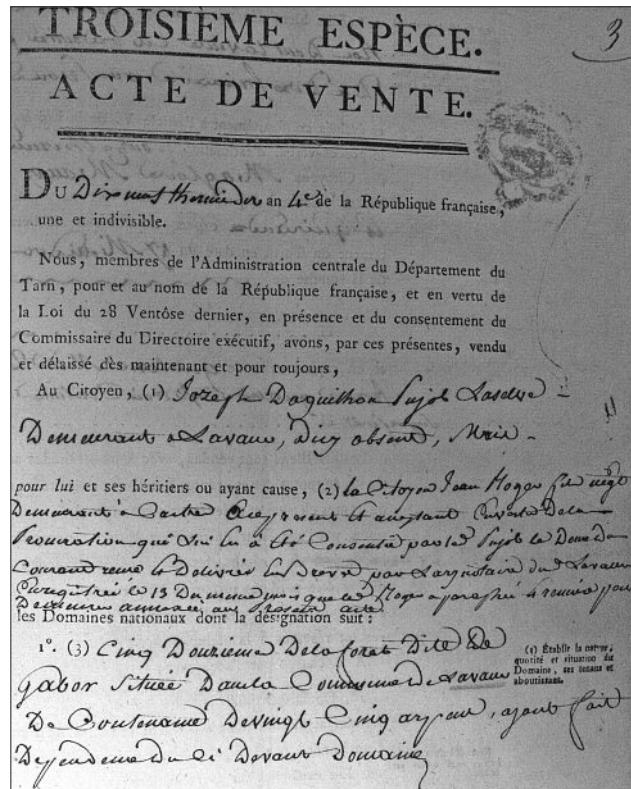 TROISIÈME ESPÈCE.
3
ACTE DE VENTE.
DU Dix neuf thermidor an 4e de la République française,
une et indivisible.
Nous, membres de l'Administration centrale du Département du
Tarn, pour et au nom de la République française, et en vertu de
la Loi du 28 Ventôse dernier, en présence et du consentement du
Commissaire du Directoire exécutif, avons, par ces présentes, vendu
et délaissé dès maintenant et pour toujours,
Au Citoyen, (1) Jozeph Daguilhon Pujol Laselve
Demeurant a Lavaur, Icy absent, Mais
pour lui et ses héritiers ou ayant cause, (2) le Citoyen Jean Hoger fils
Demeurant a Castre Icy present Et aceptant En vertu De la
Procuration qui lui a été Consentie par led Pujol le Douze du
Courant par notaire Lavaur
Enregistrée le 13 Du meme mois que led Hoger a paraphé & remise pour
Demeurer annexée au present acte
les Domaines nationaux dont la désignation suit :
1°. (3) Cinq Douzieme De la foret Dite De
Gabor Située Dans la Commune de Lavaur
De Contenance De vingt Cinq arpens, ayant fait
Dependence Du Ci Devant Domaine
(1) Établir la nature,
quotité et situation du
Domaine, ses tenans et
aboutissans.